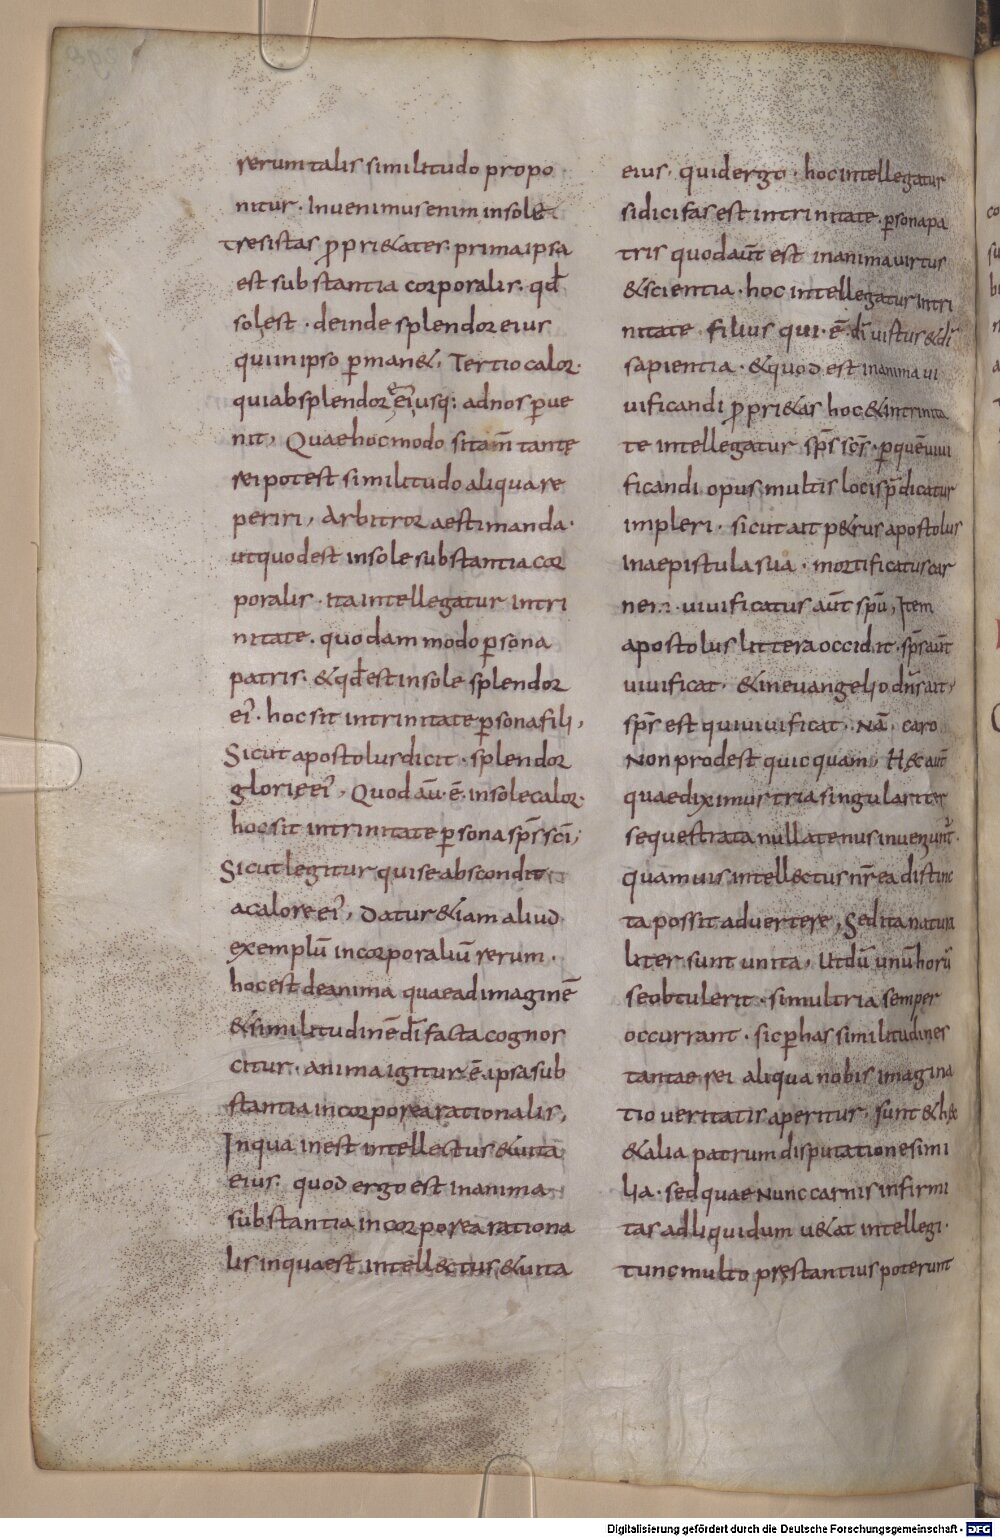 rerum talis similitudo propo
nitur. Invenimus enim in sole
tres istas ꝓpri&ates. prima ipsa
est substantia corporalis. qđ
sol est. deinde splendor eius
qui in ipso ꝑman&. Tertio calor.
qui ab splendore ei usq; ad nos ꝑue
nit, Quae hoc modo si tam̄ tantę
rei potest similitudo aliqua re
periri, Arbitror aestimanda.
ut quod est in sole substantia cor
poralis. ita intellegatur in tri
nitate. quodam modo ꝑsona
patris. & qđ est in sole splendor
ei'. hoc sit in trinitate ꝑsona filii,
Sicut apostolus dicit. splendor
glorię ei', Quod aū. ē. in sole calor.
hoc sit in trinitate ꝑsona sp̄s sc̄i,
Sicut legitur qui se abscondit
a calore ei', Datur &iam aliud
exemplū incorporaliū rerum.
hoc est de anima quae ad imaginē
& similitudinē dī facta cognos
citur. anima igitur. ē. ipsa sub
stantia incorporea rationalis,
In qua inest intellectus & uita
eius. quod ergo est in anima
substantia incorporea rationa
lis in qua est intell&ctus & uita
eius. quid ergo. hoc intellegatur
si dici fas est in trinitate. ꝑsona pa
tris quod aūt est in anima uirtus
& scientia. hoc intellegatur in tri
nitate filius qui. ē. dī uirtus & dī
sapientia. & quod est in anima ui
uificandi ꝓpri&as hoc & in trinita
te intellegatur sp̄s sc̄s. ꝑ quē uiui
ficandi opus multis locis p̄dicatur
impleri. sicut ait p&rus apostolus
in aepistula sua. mortificatus car
nem. uiuificatus aūt spū, Item
apostolus littera occidit. sp̄s aūt
uiuificat. & in euangelio dn̄s ait,
sp̄s est qui uiuificat. Nā caro
non prodest quicquam, Hęc aūt
quae diximus tria singulariter
sequestrata nullatenus inueniunt'.
quamuis intell&ctus nr̄ ea distinc
ta possit aduertere, Sed ita natura
liter sunt unita, Ut dū unū horū
se obtulerit. simul tria semper
occurrant. sic ꝑ has similitudines
tantae rei aliqua nobis imagina
tio ueritatis aperitur. sunt & hęc
& alia patrum disputatione simi
lia. sed quae nunc carnis infirmi
tas ad liquidum u&at intellegi.
tunc multo pręstantius poterunt
Digitalisierung gefördert durch die Deutsche Forschungsgemeinschaft - DFG